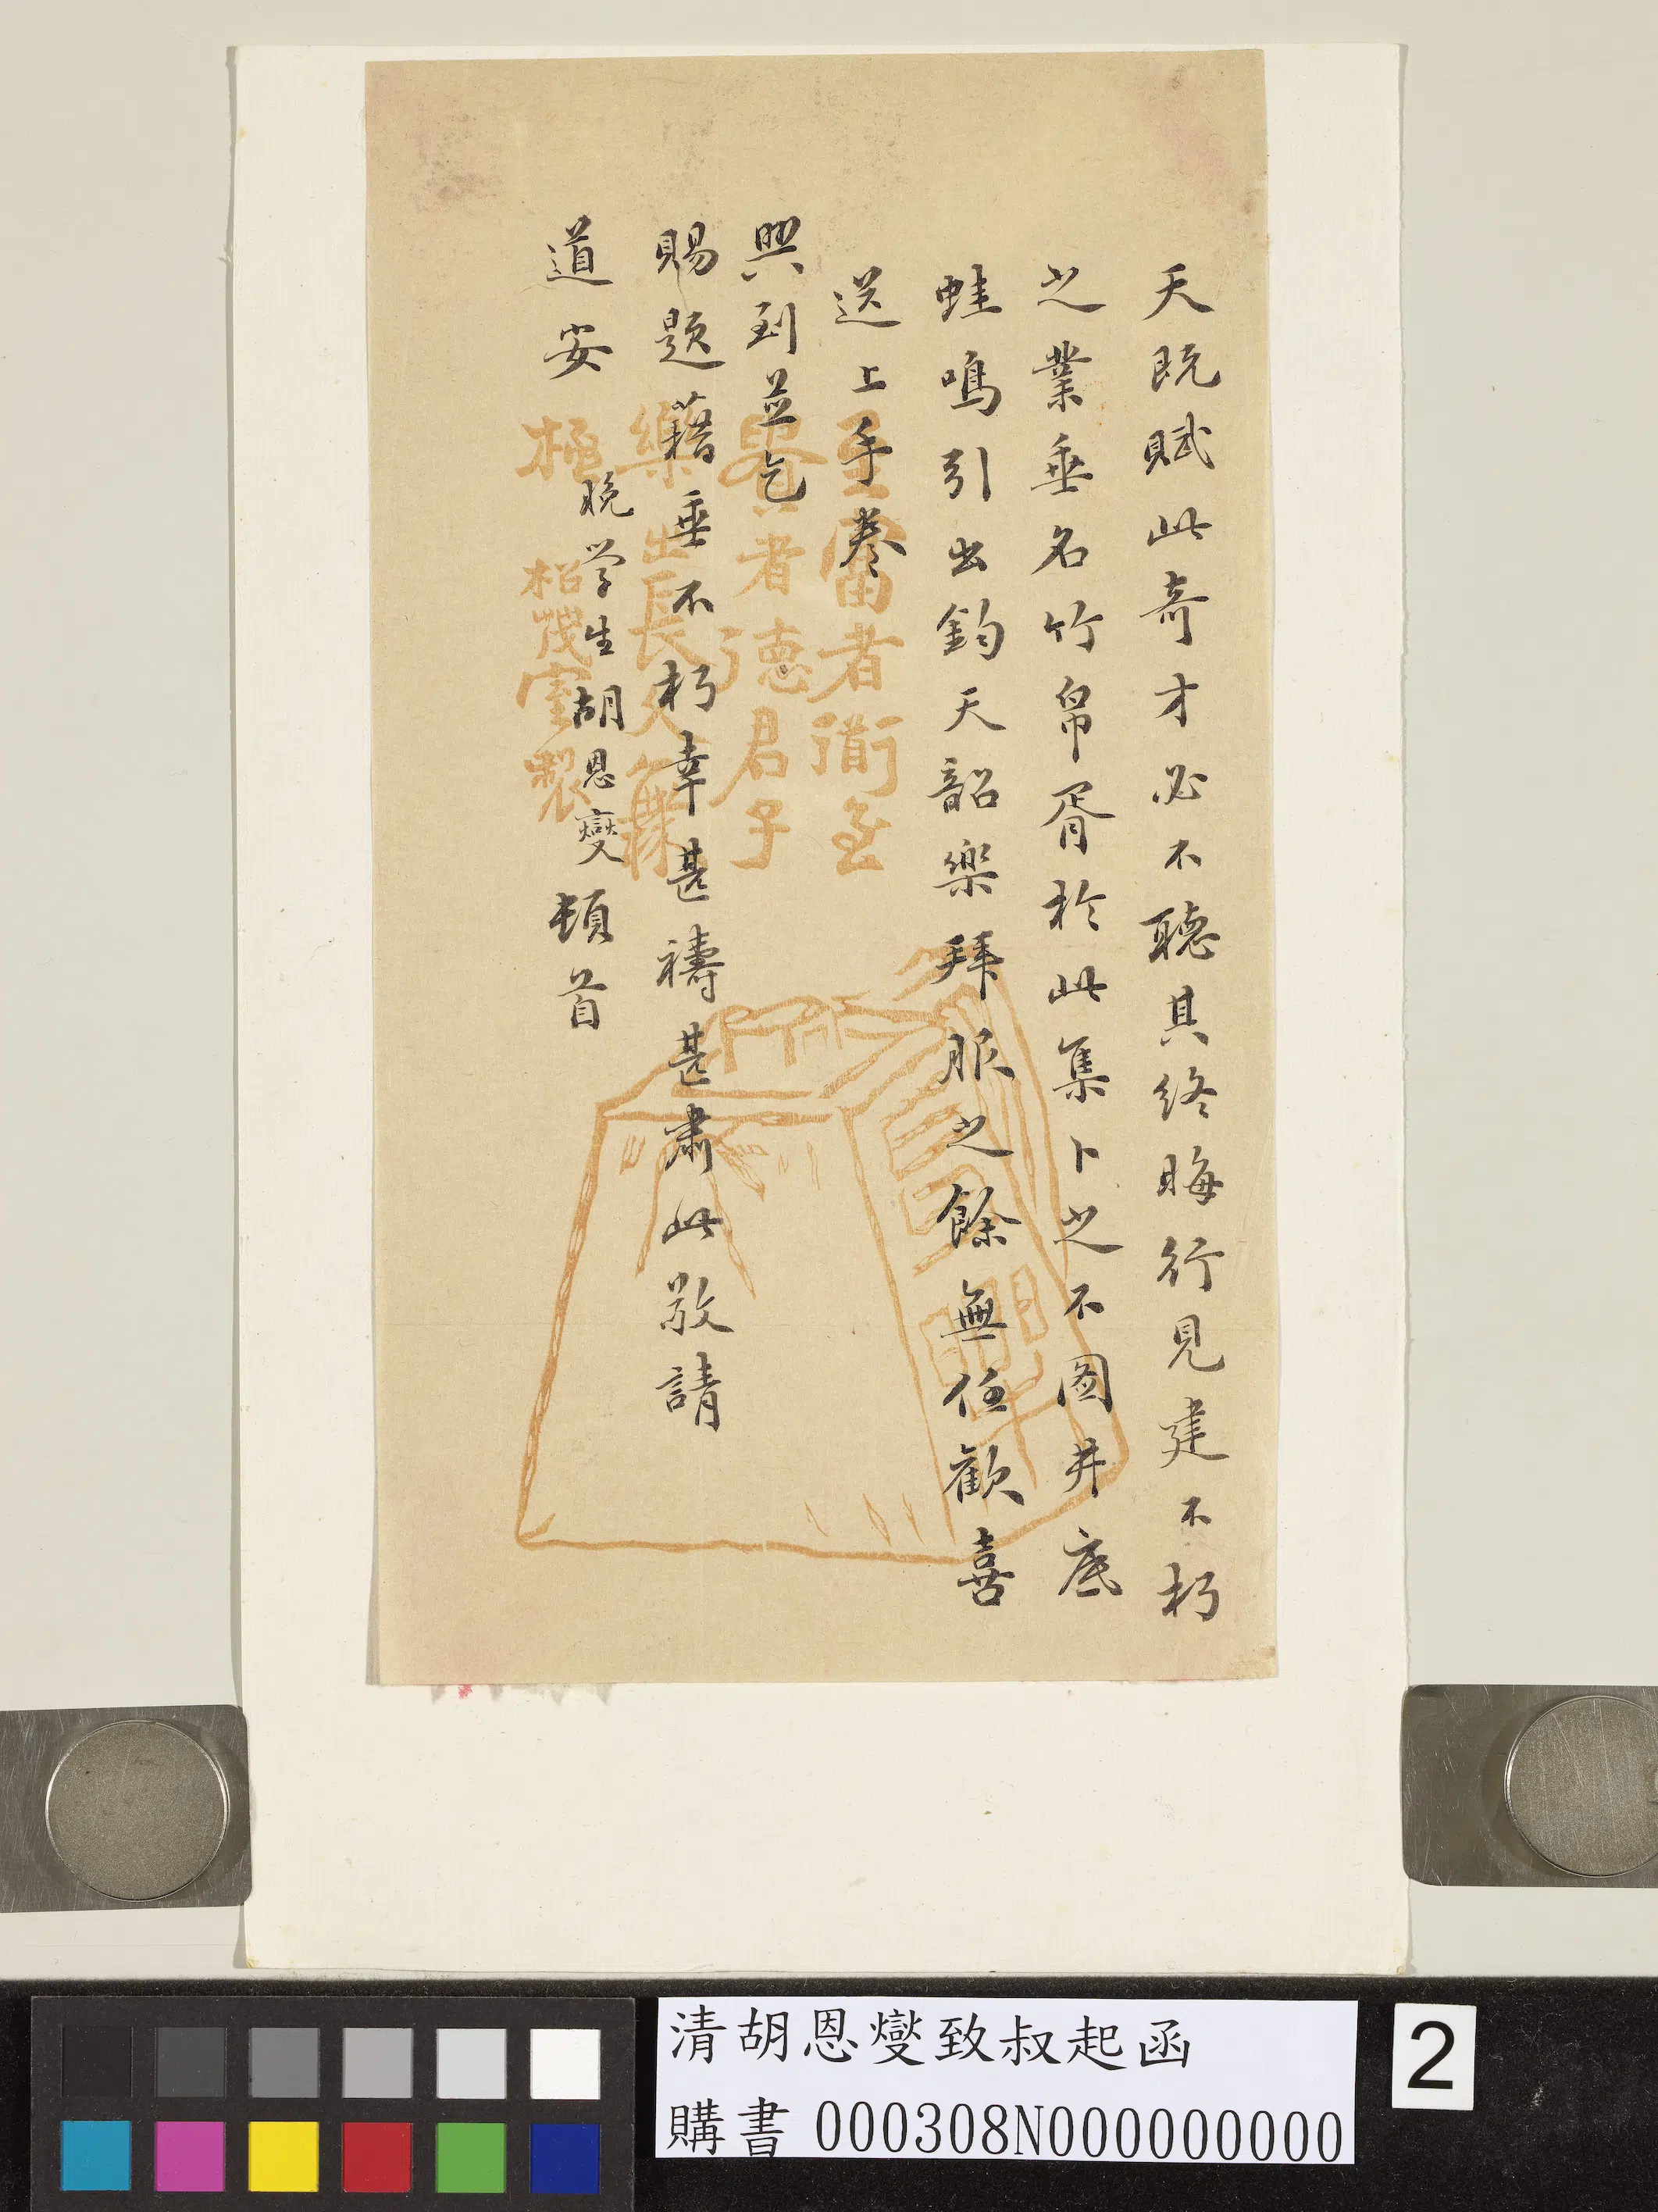 天既賦此奇才必不聽其終晦行見建不朽
之業垂名竹帛胥於此集卜之不圖井底
蛙鳴引出鈞天韶樂拜服之餘無任歡喜
送上手卷
興到並乞
賜題藉垂不朽幸甚禱甚肅此敬請
道安
晚学生胡恩燮頓首
至富者衜至
貴者德君子
樂出長久無
極
松茂室製
清胡恩燮致叔起函
購書 000308N000000000
2